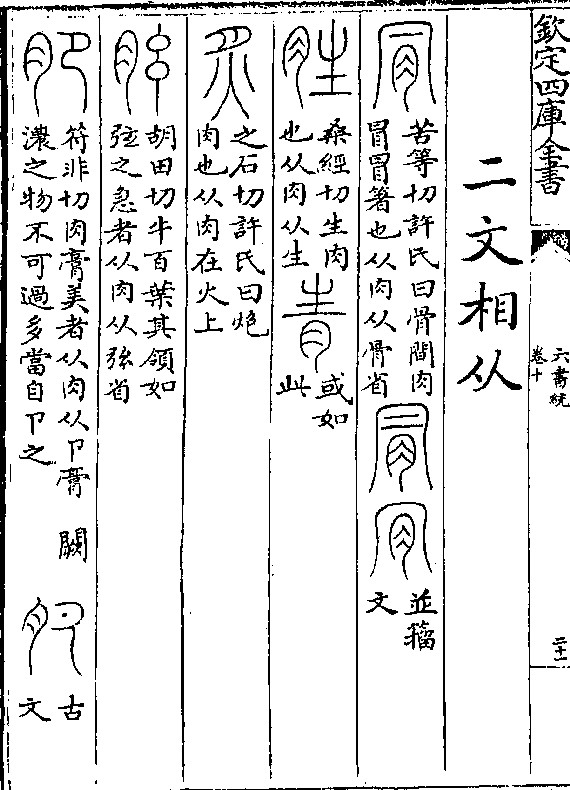 欽定四庫全書
六書統
卷十
二十一
二文相从
肎
苦等切許氏曰骨間肉
冐冐箸也从肉从骨省
並籀
文
胜
桑經切生肉
也从肉从生
或如
此
炙
之石切許氏曰炮
肉也从肉在火上
胘
胡田切牛百葉其領如
弦之急者从肉从弦省
肥
符非切肉膏美者从肉从卩膏
濃之物不可過多當自卩之
闕
古
文